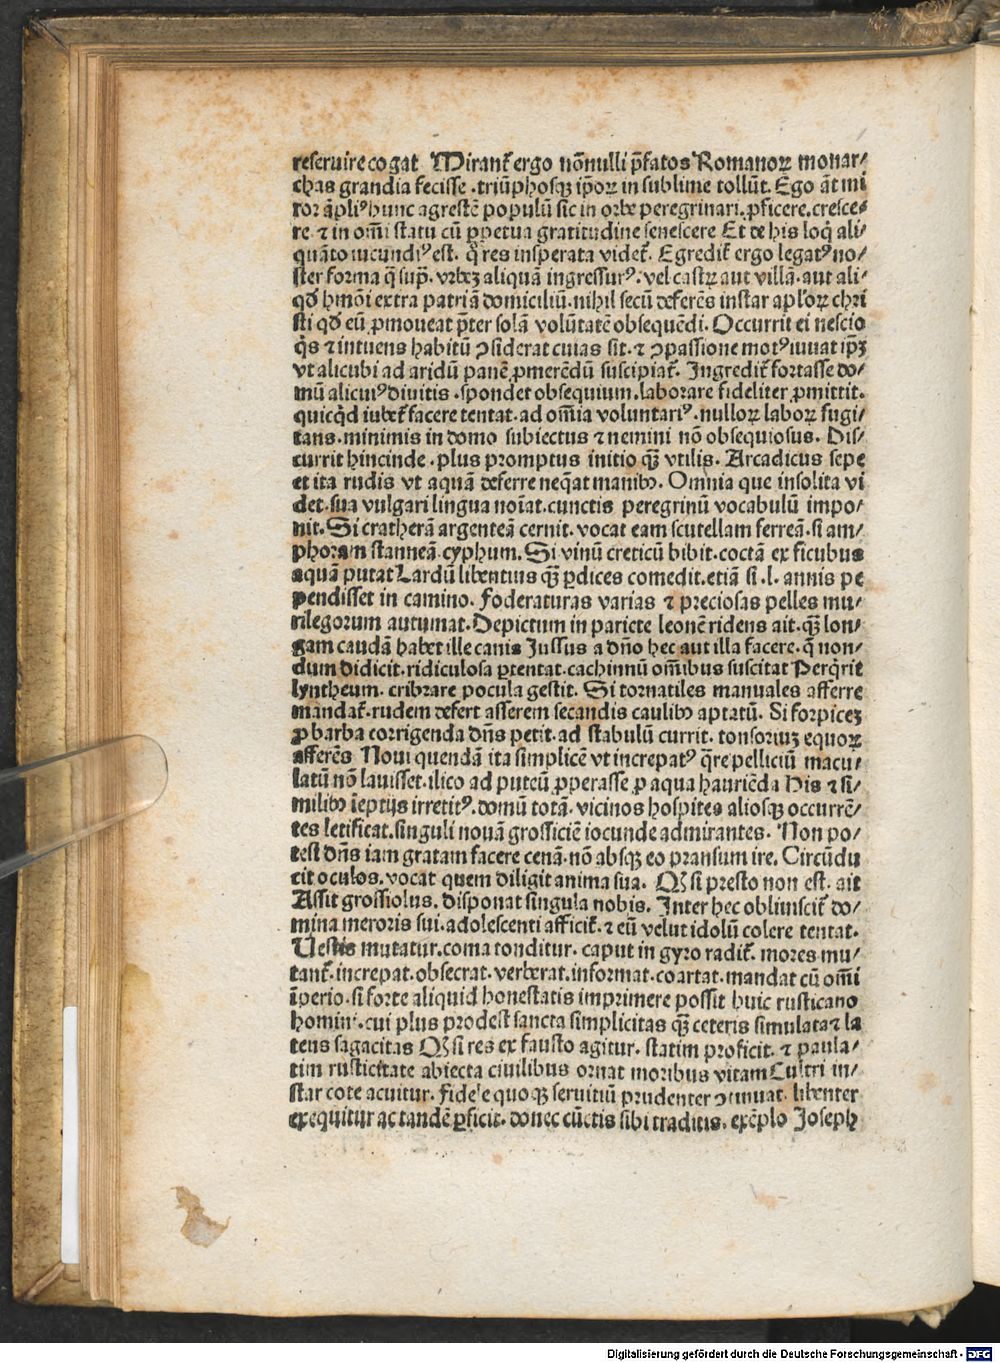 reseruire cogat Mirant᷒ ergo nōnulli p̄fatos Romanoꝝ monar⸗
chas grandia fecisse .triūphosqꝫ ip̄oꝝ in sublime tollūt. Ego āt mi
ror āpliꝰ hunc agrestē populū sic in orbe peregrinari. ꝓficere. cresce⸗
re ⁊ in om̄i statu cū ꝑpetua gratitudine senescere Et de his loq̇ ali⸗
quāto iucundiꝰ est. q̄ res insperata videt᷒. Egredit᷒ ergo legatꝰ no⸗
ster forma q̄ sup̄. vrbeꝫ aliquā ingressurꝰ. vel castꝝ aut villā. aut ali⸗
qđ hmōi extra patriā domiciliū. nihil secū deferēs instar apl'oꝝ chri
sti qđ eū ꝓmoueat p̄ter solā volūtatē obsequēdi. Occurrit ei nescio
q̇s ⁊ intuens habitū ꝯsiderat cuias sit. ⁊ ꝯpassione motꝰ iuuat ip̄ꝫ
vt alicubi ad aridū panē ꝓmerēdū suscipiat᷒. Ingredit᷒ fortasse do⸗
mū alicuiꝰ diuitis .spondet obsequium. laborare fideliter ꝓmittit.
quicq̇d iubet᷒ facere tentat. ad om̄ia voluntariꝰ. nulloꝝ laboꝝ fugi⸗
tans. minimis in domo subiectus ⁊ nemini nō obsequiosus. Dis⸗
currit hincinde . plus promptus initio qꝫ̄ vtilis. Arcadicus sepe
et ita rudis vt aquā deferre neq̄at manibꝰ. Omnia que insolita vi
det. sua vulgari lingua noīat. cunctis peregrinū vocabulū impo⸗
nit. Si cratherā argenteā cernit. vocat eam scutellam ferreā. si am⸗
phoram stanneā. cyphum. Si vinū creticū bibit. coctā ex ficubus
aquā putat Lardū libentius qꝫ̄ ꝑdices comedit. etiā si .l. annis pe
pendisset in camino. Foderaturas varias ⁊ preciosas pelles mu⸗
rilegorum autumat. Depictum in pariete leonē ridens ait. qꝫ̄ lon⸗
gam caudā habet ille canis Jussus a dn̄o hec aut illa facere. q̄ non⸗
dum didicit. ridiculosa ꝑtentat. cachinnū om̄ibus suscitat Perq̇rit
lyntheum. cribrare pocula gestit. Si tornatiles manuales afferre
mandat᷒. rudem defert asserem secandis caulibꝰ aptatū. Si forpiceꝫ
ꝓ barba corrigenda dn̄s petit. ad stabulū currit. tonsoriuꝫ equoꝝ
afferēs Noui quendā ita simplicē vt increpatꝰ q̄re pelliciū macu⸗
latū nō lauisset. ilico ad puteū ꝓperasse ꝓ aqua hauriēda His ⁊ si⸗
milibꝰ īeptijs irretitꝰ. domū totā. vicinos hospites aliosqꝫ occurrē⸗
tes letificat. singuli nouā grossiciē iocunde admirantes. Non po⸗
test dn̄s iam gratam facere cenā. nō absqꝫ eo pransum ire. Circūdu
cit oculos. vocat quem diligit anima sua. Qꝫ si presto non est. ait
Assit grossiolus. disponat singula nobis. Inter hec obliuiscit᷒ do⸗
mina meroris sui. adolescenti afficit᷒. ⁊ eū velut idolū colere tentat.
Uestis mutatur. coma tonditur. caput in gyro radit᷒. mores mu⸗
tant᷒. increpat. obsecrat. verberat. informat. coartat. mandat cū om̄i
īperio. si forte aliquid honestatis imprimere possit huic rusticano
homini. cui plus prodest sancta simplicitas qꝫ̄ ceteris simulata ⁊ la
tens sagacitas Qꝫ si res ex fausto agitur. statim proficit. ⁊ paula⸗
tim rusticitate abiecta ciuilibus ornat moribus vitam Cultri in⸗
star cote acuitur. fidele quoqꝫ seruitiū prudenter ꝯtinuat. libenter
exequitur ac tandē ꝑficit. donec cūctis sibi traditis. exēplo Joseph
Digitalisierung gefördert durch die Deutsche Forschungsgemeinschaft - DFG